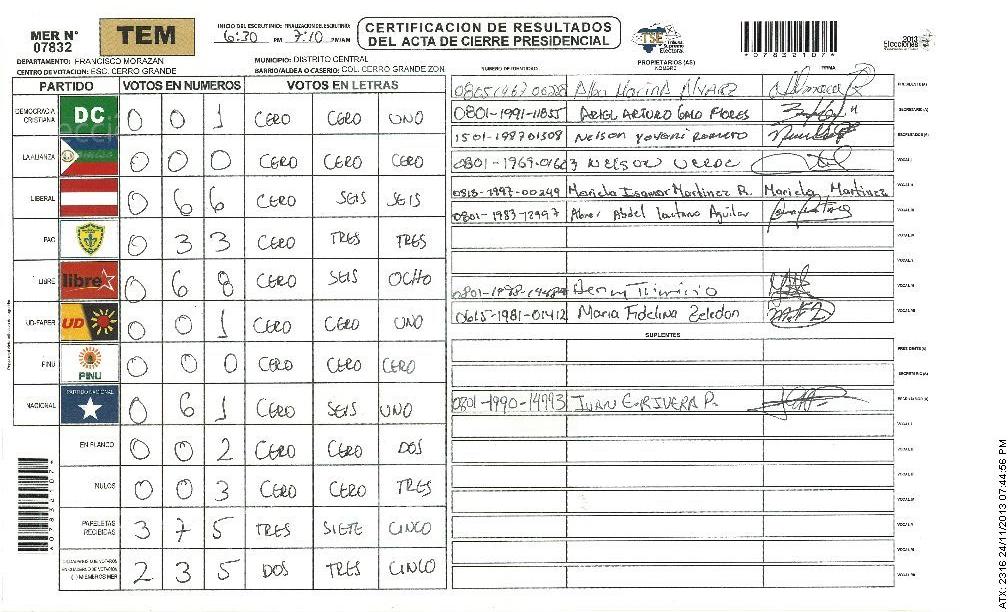 MER N°
07832
TEM
INICIO DEL ESCRUTINIO: FINALIZACION DEL ESCRUTINIO:
6:30 PM 7:10 PM/AM
CERTIFICACION DE RESULTADOS
DEL ACTA DE CIERRE PRESIDENCIAL
TSE
Tribunal
Supremo
Electoral
*07832107*
2013
Elecciones
DEPARTAMENTO: FRANCISCO MORAZAN
MUNICIPIO: DISTRITO CENTRAL
CENTRO DE VOTACION: ESC. CERRO GRANDE
BARRIO/ALDEA O CASERIO: COL. CERRO GRANDE ZON
NUMERO DE IDENTIDAD
PROPIETARIOS (AS)
NOMBRE
FIRMA
PARTIDO VOTOS EN NUMEROS VOTOS EN LETRAS
DEMOCRACIA CRISTIANA DC 0 0 1 CERO CERO UNO
LA ALIANZA 0 0 0 CERO CERO CERO
LIBERAL 0 6 6 CERO SEIS SEIS
PAC 0 3 3 CERO TRES TRES
LIBRE libre 0 6 8 CERO SEIS OCHO
UD-FAPER UD 0 0 1 CERO CERO UNO
PINU PINU 0 0 0 CERO CERO CERO
NACIONAL PARTIDO NACIONAL 0 6 1 CERO SEIS UNO
EN BLANCO 0 0 2 CERO CERO DOS
NULOS 0 0 3 CERO CERO TRES
PAPELETAS RECIBIDAS 3 7 5 TRES SIETE CINCO
MIEMBROS MER 2 3 5 DOS TRES CINCO
PRESIDENTE (A)
0801-1991-11855 ARIEL ARTURO GALO FLORES SECRETARIO (A)
1501-198701308 Nelson ESCRUTADOR (A)
0801-1969-04603 NELSON VOCAL I
0818-1997-00249 Mariela Isamar Martinez R. Mariela Martinez VOCAL II
0801-1983-12997 Abner Abdel Aguilar VOCAL III
VOCAL IV
VOCAL V
VOCAL VI
0615-1981-01412 Maria Fidelina Zeledon VOCAL VII
SUPLENTES
PRESIDENTE (A)
SECRETARIO (A)
0801-1990-14993 JUAN C. RIVERA P. ESCRUTADOR (A)
VOCAL I
VOCAL II
VOCAL III
VOCAL IV
VOCAL V
VOCAL VI
VOCAL VII
*07832107*
ATX: 2316 24/11/2013 07:44:56 PM